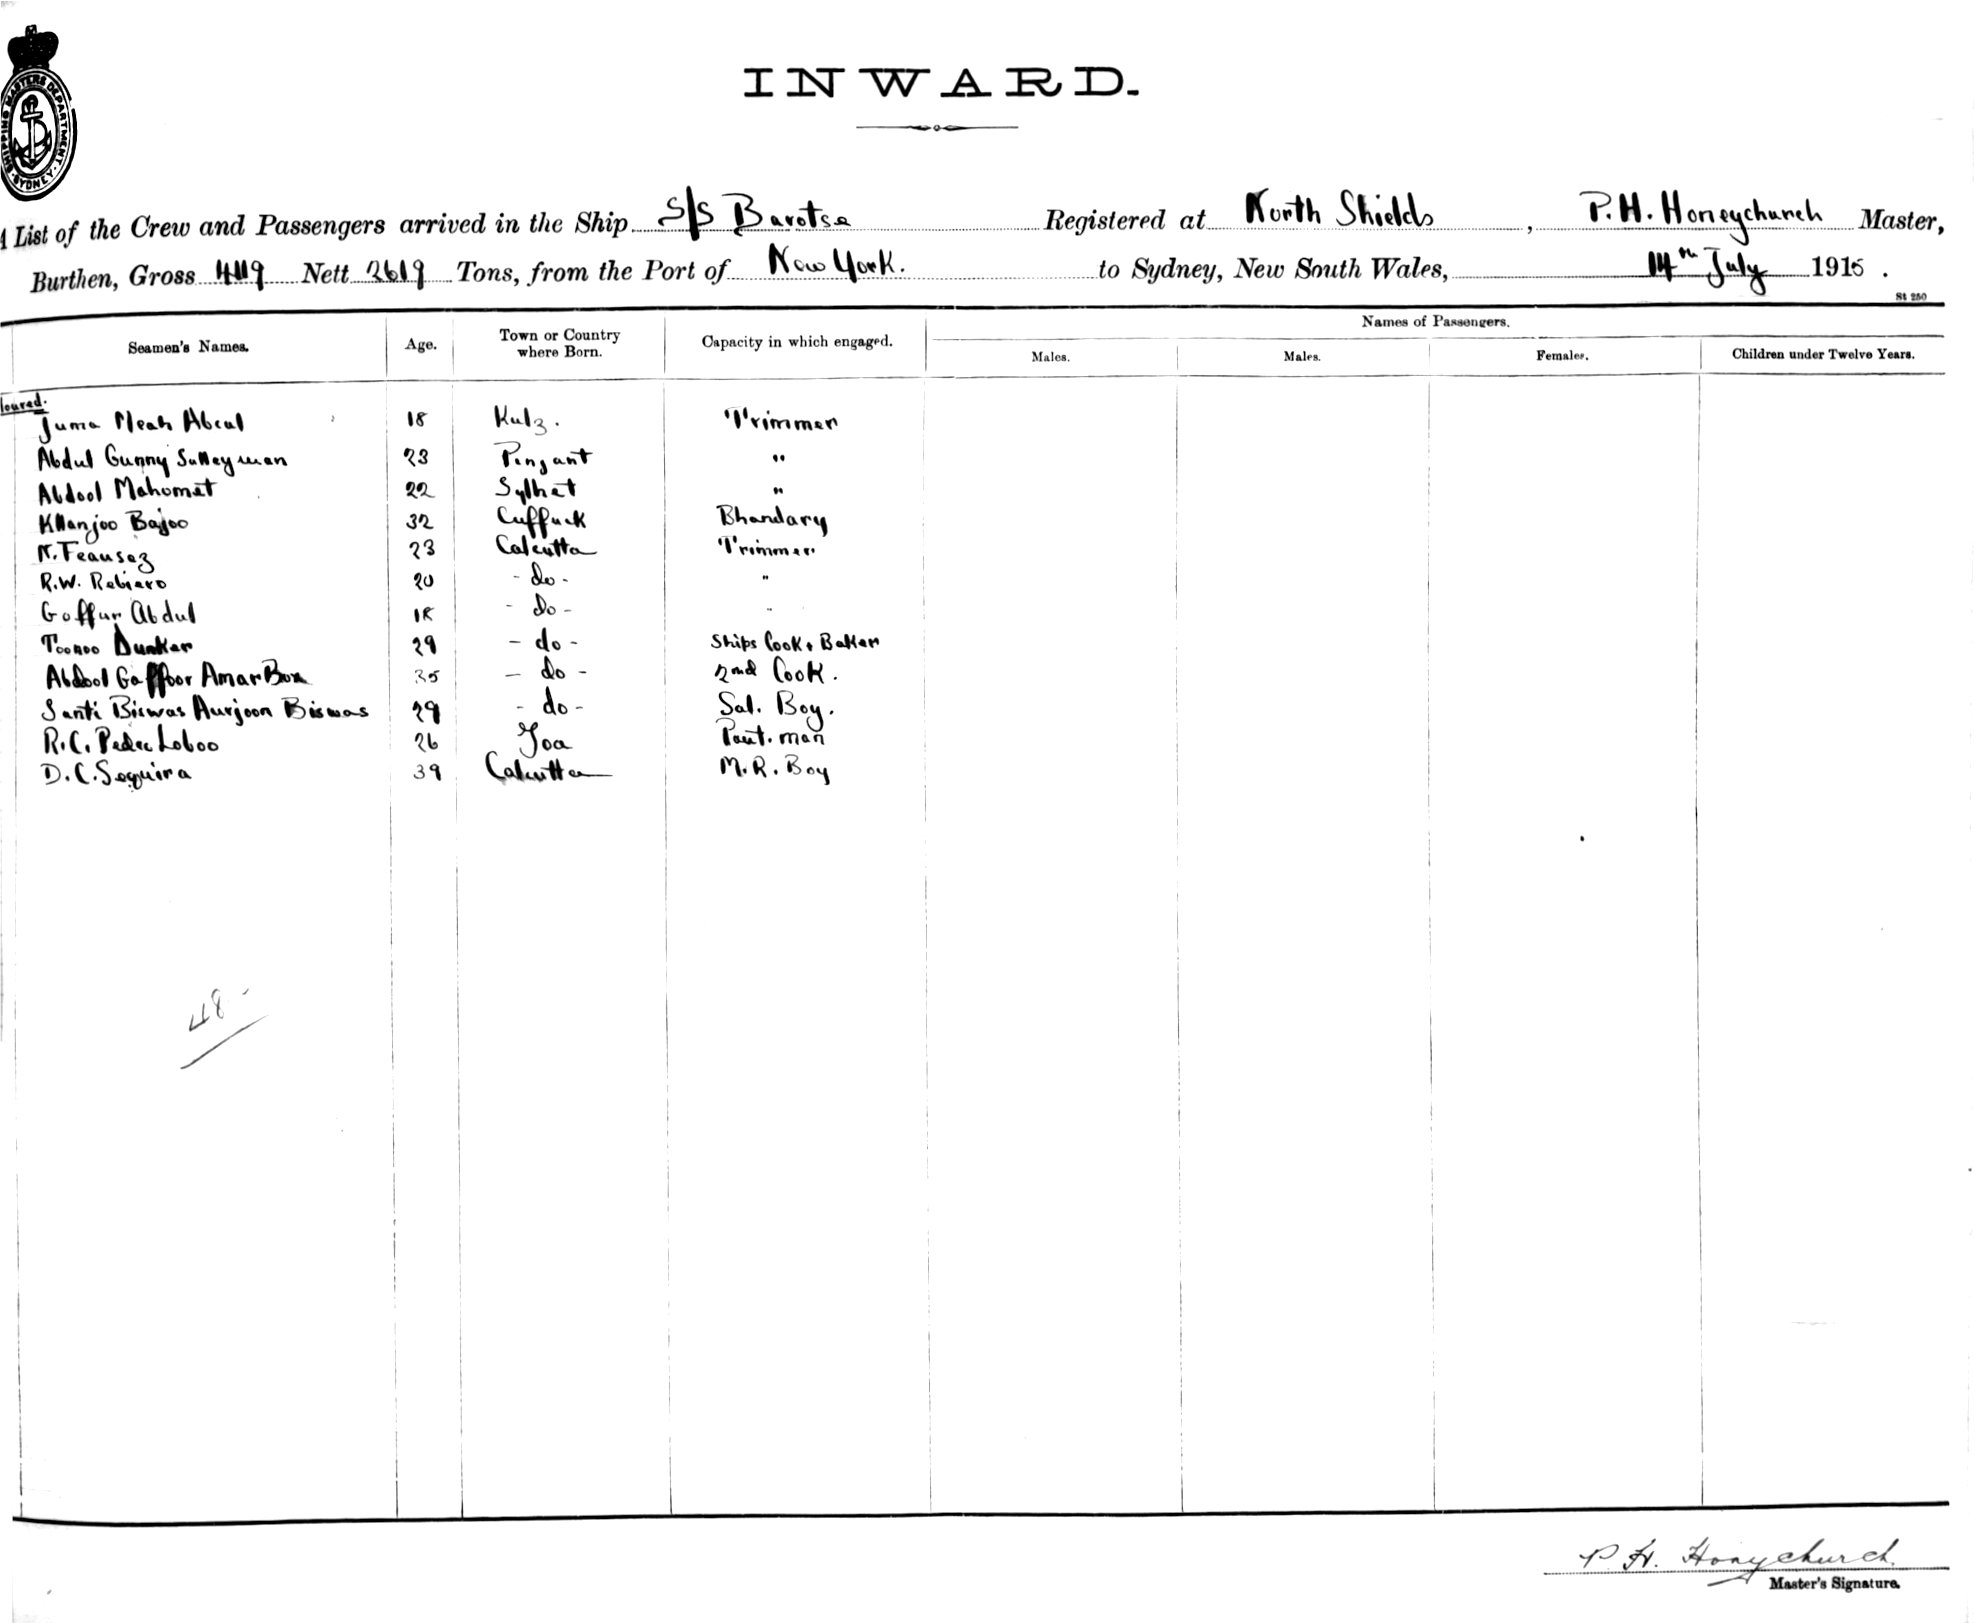 SHIPPING MASTERS DEPARTMENT · SYDNEY ·
INWARD.
List of the Crew and Passengers arrived in the Ship S/S Barotse Registered at North Shields, P. H. Honeychurch Master,
Burthen, Gross 4119 Nett 2619 Tons, from the Port of New York. to Sydney, New South Wales, 14th July 1915.
St 250
Seamen's Names. Age. Town or Country where Born. Capacity in which engaged. Names of Passengers.
Males. Males. Females. Children under Twelve Years.
loured.
Juma Meah Abcul 18 Kulz. Trimmer
Abdul Gunny Sulleyman 23 Penjant "
Abdool Mahomet 22 Sylhet "
Khanjoo Bajoo 32 Cuffuck Bhandary
N. Feausez 23 Calcutta Trimmer
R.W. Rebiero 20 - do - "
Goffur Abdul 18 - do - "
Toonoo Dunker 29 - do - Ships Cook & Baker
Abdool Gaffoor Amar Box 35 - do - 2nd Cook.
Santi Biswas Aurjoon Biswas 29 - do - Sal. Boy.
R.C. Pedee Loboo 26 Goa Pant. man
D.C. Sequira 39 Calcutta M.R. Boy
48 -
P. H. Honeychurch
Master's Signature.